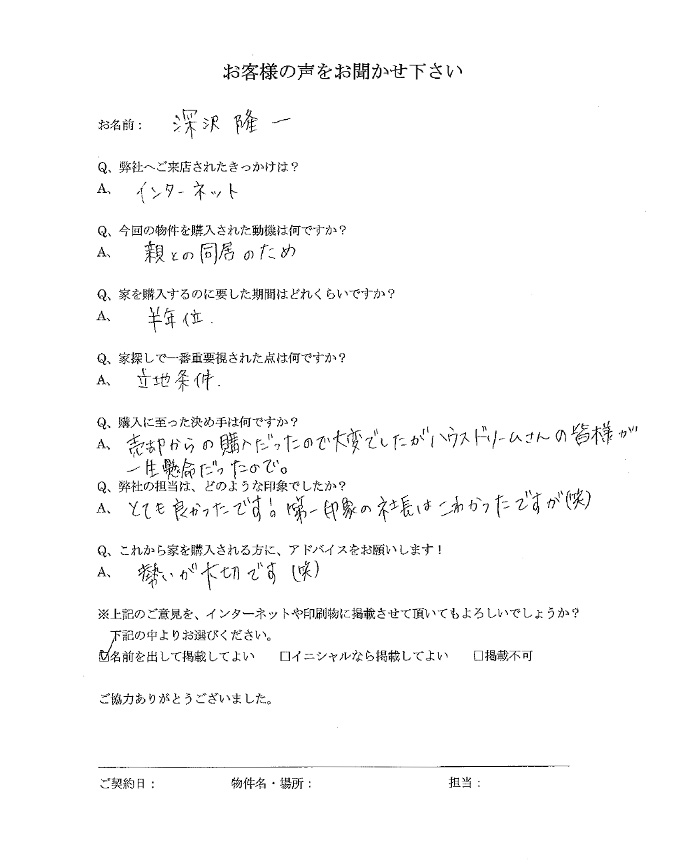 お客様の声をお聞かせ下さい
お名前： 深沢 隆一
Q、弊社へご来店されたきっかけは？
A、 インターネット
Q、今回の物件を購入された動機は何ですか？
A、 親との同居のため
Q、家を購入するのに要した期間はどれくらいですか？
A、 半年位.
Q、家探しで一番重要視された点は何ですか？
A、 立地条件.
Q、購入に至った決め手は何ですか？
A、 売却からの購入だったので大変でしたがハウスドリームさんの皆様が
一生懸命だったので。
Q、弊社の担当は、どのような印象でしたか？
A、 とても良かったです！。第一印象の社長はこわかったですが(笑)
Q、これから家を購入される方に、アドバイスをお願いします！
A、 勢いが大切です (笑)
※上記のご意見を、インターネットや印刷物に掲載させて頂いてもよろしいでしょうか？
下記の中よりお選びください。
☑名前を出して掲載してよい □イニシャルなら掲載してよい □掲載不可
ご協力ありがとうございました。
ご契約日： 物件名・場所： 担当：